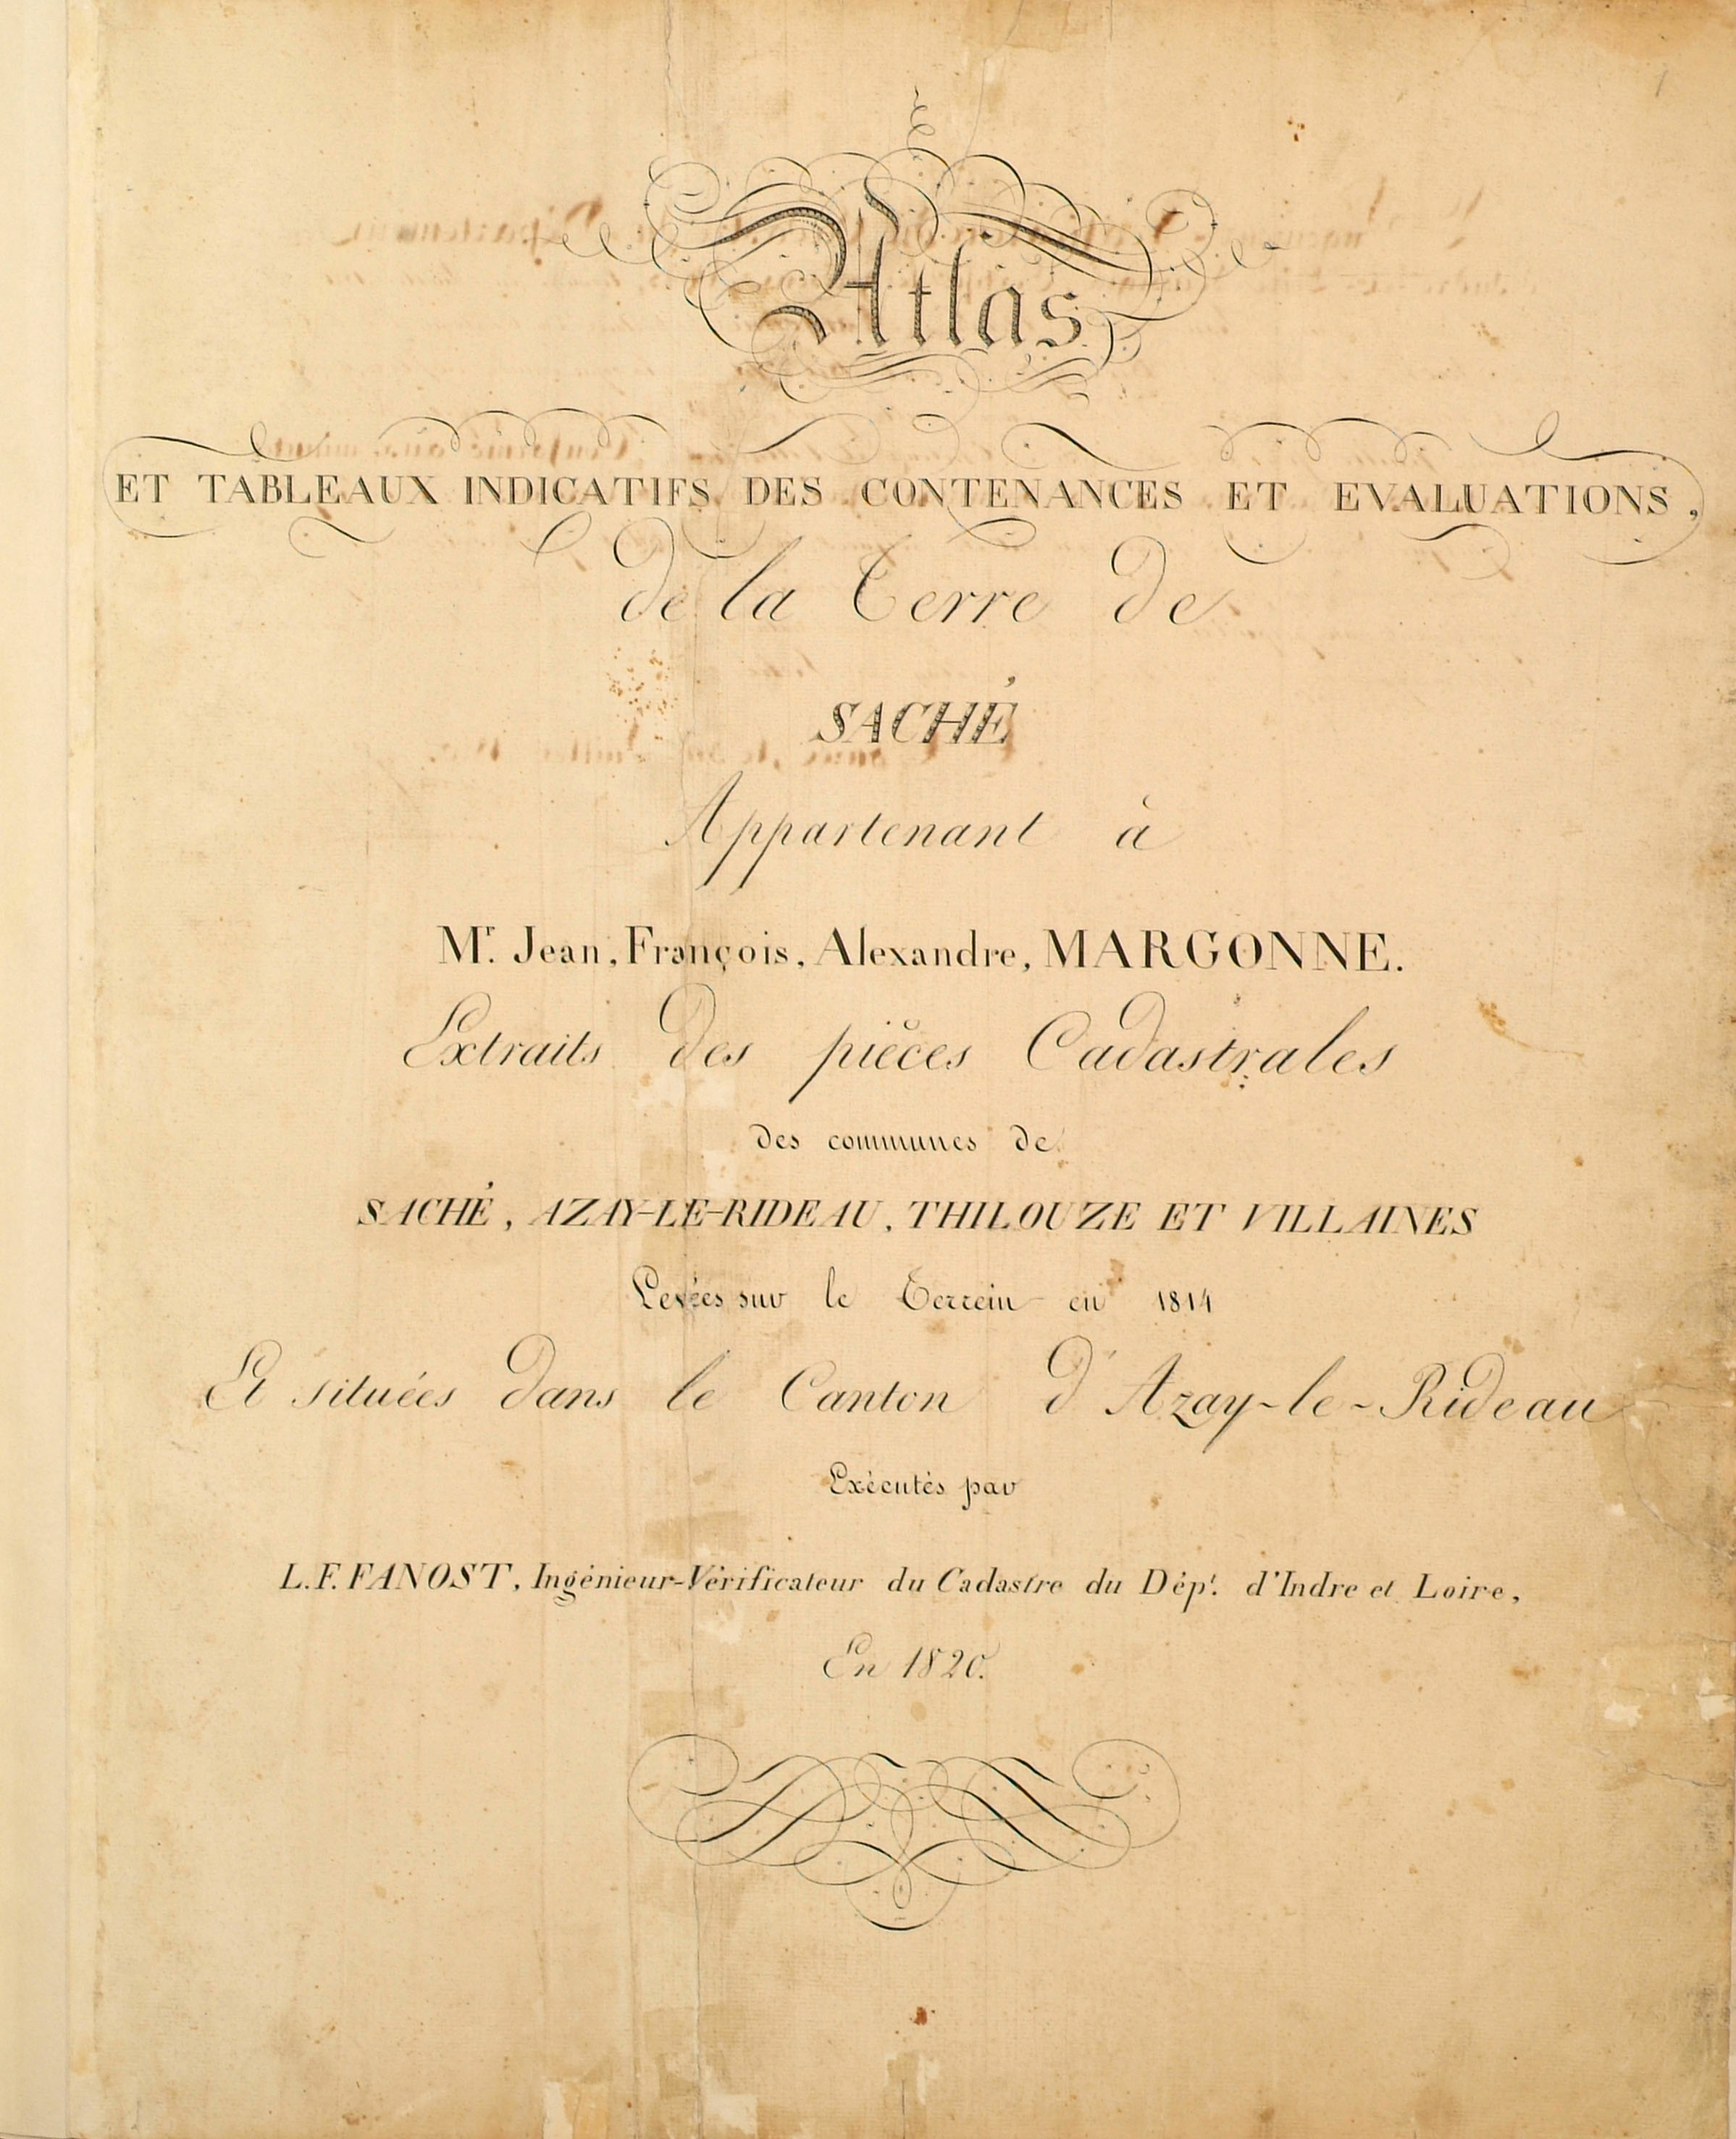 Atlas
ET TABLEAUX INDICATIFS DES CONTENANCES ET EVALUATIONS,
de la Terre de
SACHÉ
Appartenant à
Mr. Jean, François, Alexandre, MARGONNE.
Extraits des pièces Cadastrales
des communes de
SACHÉ, AZAY-LE-RIDEAU, THILOUZE ET VILLAINES
Levées sur le Terrein en 1814
Et situées dans le Canton d'Azay-le-Rideau
Exécutés par
L.F. FANOST, Ingénieur-Vérificateur du Cadastre du Dépt. d'Indre et Loire,
En 1820.